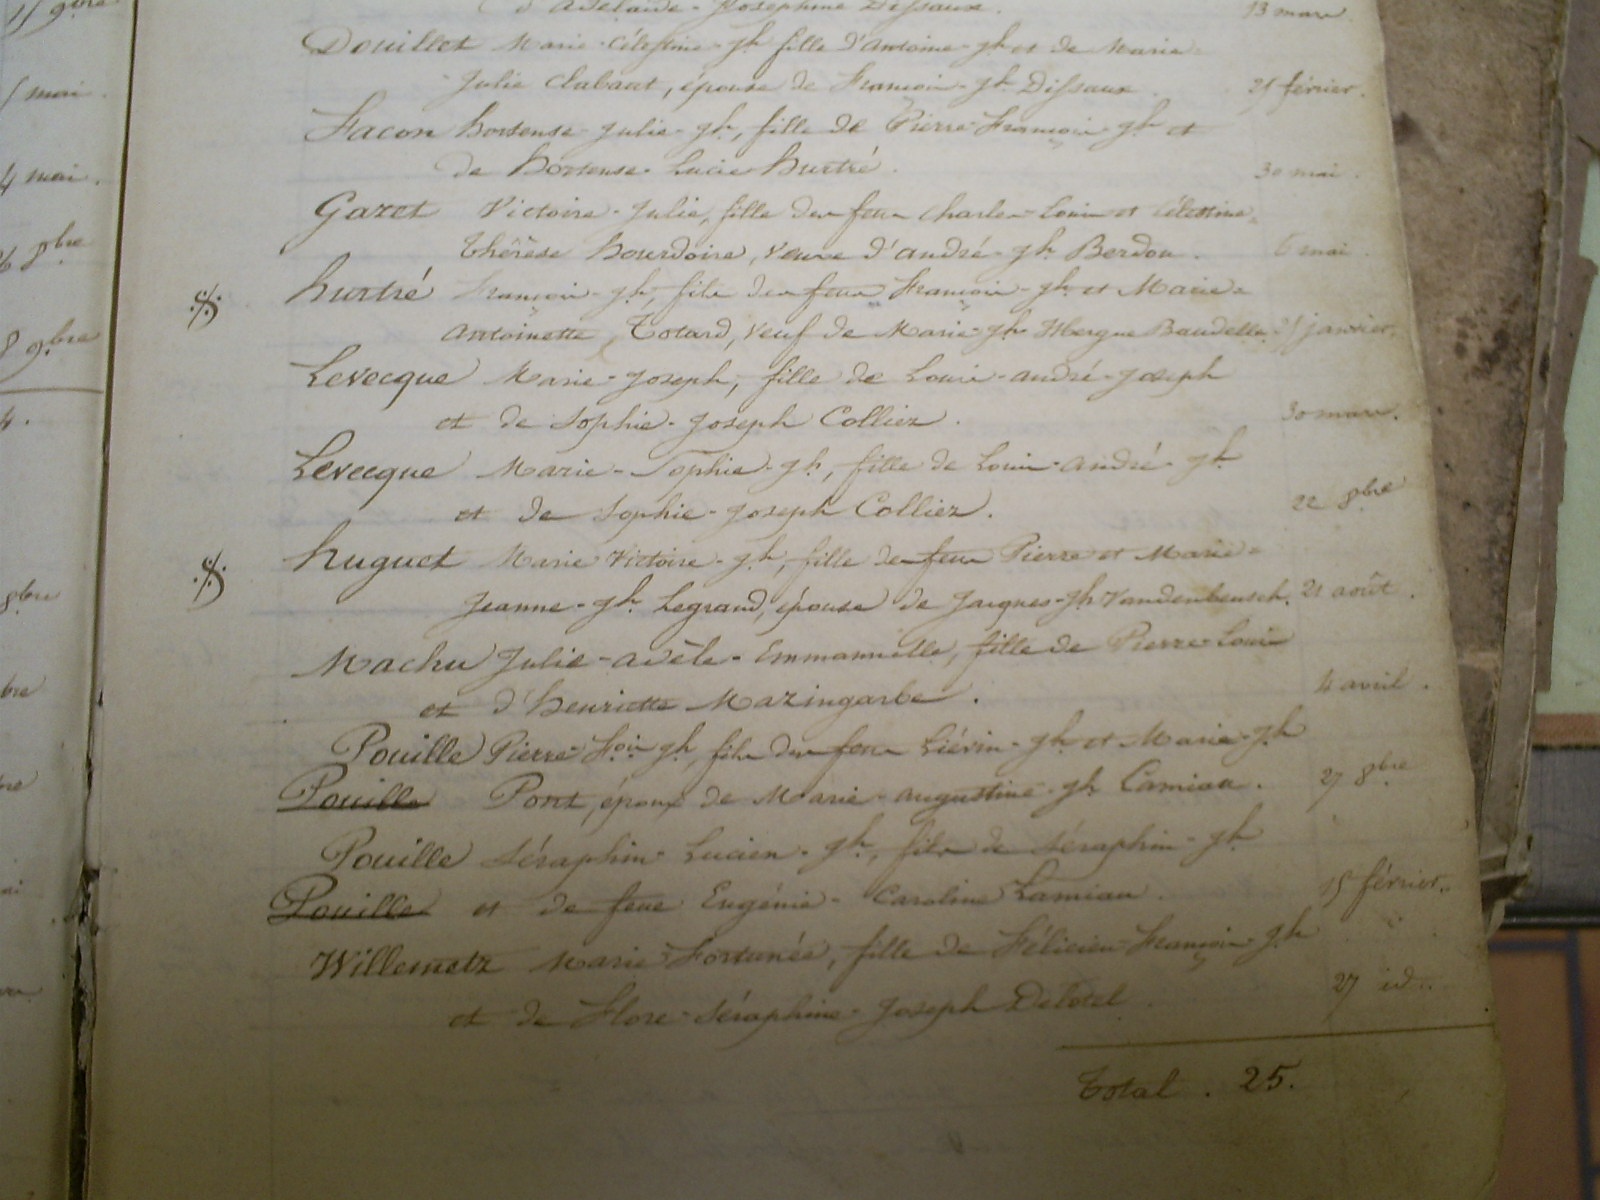 d'Adélaïde-Joséphine Dissaux. 13 mars
Douillet Marie-Célestine-Jh fille d'antoine-Jh et de Marie-
Julie Clabaut, épouse de François-Jh Dissaux. 25 février.
Facon hortense-Julie-Jh, fille de Pierre-François-Jh et
de hortense-Lucie hurtré. 30 mai.
Gazet Victoire-Julie, fille de feu Charles-Louis et Célestine-
Thérèse Bourdoire, veuve d'andré-Jh Berdou. 6 mai.
hurtré François-Jh, fils de feu François-Jh et Marie-
antoinette Totard, veuf de Marie-Jh Ibergue Baudelle. 25 janvier.
Levecque Marie-Joseph, fille de Louis-andré-Joseph
et de Sophie-Joseph Colliez. 30 mars.
Levecque Marie-Sophie-Jh, fille de Louis-andré-Jh
et de Sophie-Joseph Colliez. 22 8bre
huguet Marie Victoire-Jh, fille de feu Pierre et Marie-
Jeanne-Jh Legrand, épouse de Jacques-Jh Vandenbeusch. 21 août.
Machu Julie-adèle-Emmanuelle, fille de Pierre-Louis
et d'henriette Mazingarbe. 4 avril.
Pouille Pierre-Fois Jh, fils de feu Liévin-Jh et Marie-Jh
Pouille Pont, époux de Marie-augustine-Jh Camiau. 27 8bre
Pouille Séraphin-Lucien-Jh, fils de Séraphin-Jh
Pouille et de feue Eugénie-Caroline Lamiau. 15 février.
Willemetz Marie-Fortunée, fille de Félicien-François-Jh
et de Flore-Séraphine-Joseph Delotel. 27 id.
Total. 25.
15 9bre
mai.
4 mai.
8bre
9bre
4.
8bre
bre